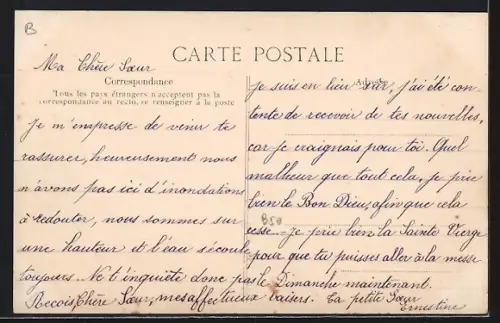 B
CARTE POSTALE
Ma Chère Sœur
Correspondance
Tous les pays étrangers n'acceptent pas la
correspondance au recto, se renseigner à la poste
je m'empresse de venir te
rassurer, heureusement nous
n'avons pas ici d'inondations
à redouter, nous sommes sur
une hauteur et l'eau s'écoule
toujours. Ne t'inquiète donc pas
Reçois, Chère Sœur, mes affectueux baisers. Ta petite Sœur
Ernestine
Adresse
je suis en lieu sûr, j'ai été con-
tente de recevoir de tes nouvelles,
car je craignais pour toi. Quel
malheur que tout cela, je prie
bien le Bon Dieu, afin que cela
cesse — je prie bien la Sainte Vierge
pour que tu puisses aller à la messe
le Dimanche maintenant.
850